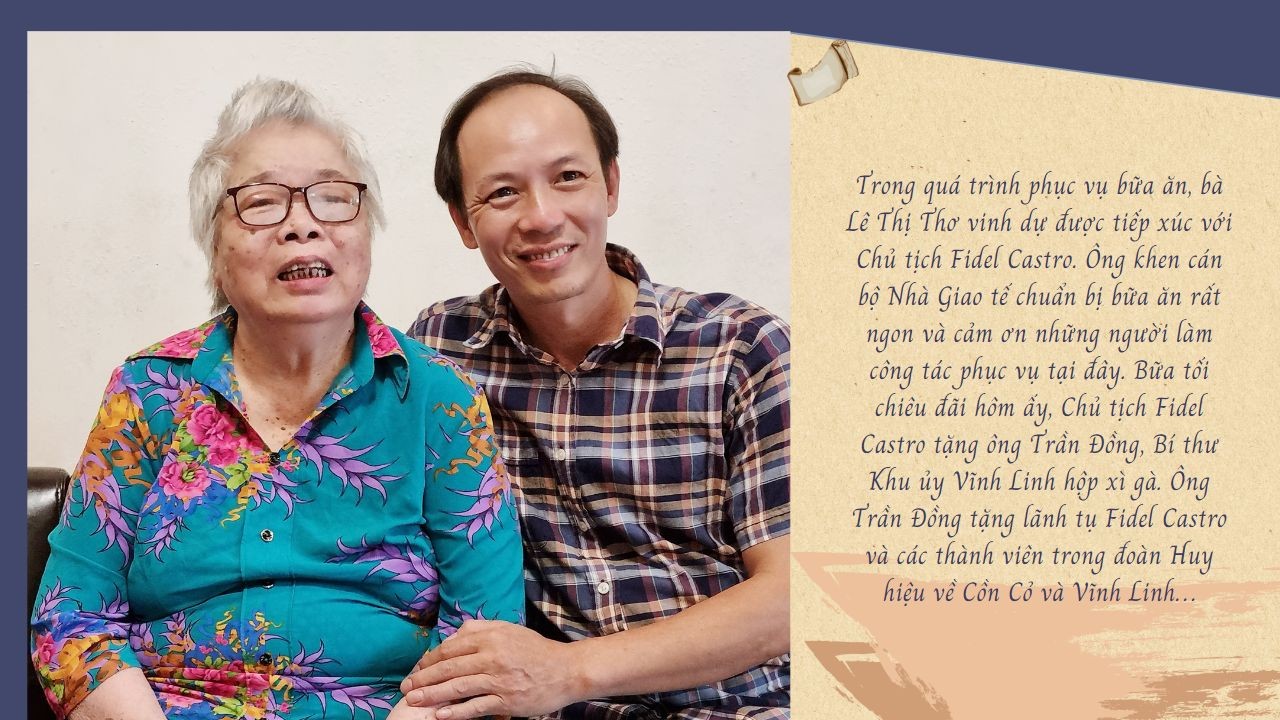 Trong quá trình phục vụ bữa ăn, bà
Lê Thị Thơ vinh dự được tiếp xúc với
Chủ tịch Fidel Castro. Ông khen cán
bộ Nhà Giao tế chuẩn bị bữa ăn rất
ngon và cảm ơn những người làm
công tác phục vụ tại đây. Bữa tối
chiêu đãi hôm ấy, Chủ tịch Fidel
Castro tặng ông Trần Đồng, Bí thư
Khu ủy Vĩnh Linh hộp xì gà. Ông
Trần Đồng tặng lãnh tụ Fidel Castro
và các thành viên trong đoàn Huy
hiệu về Cồn Cỏ và Vĩnh Linh...